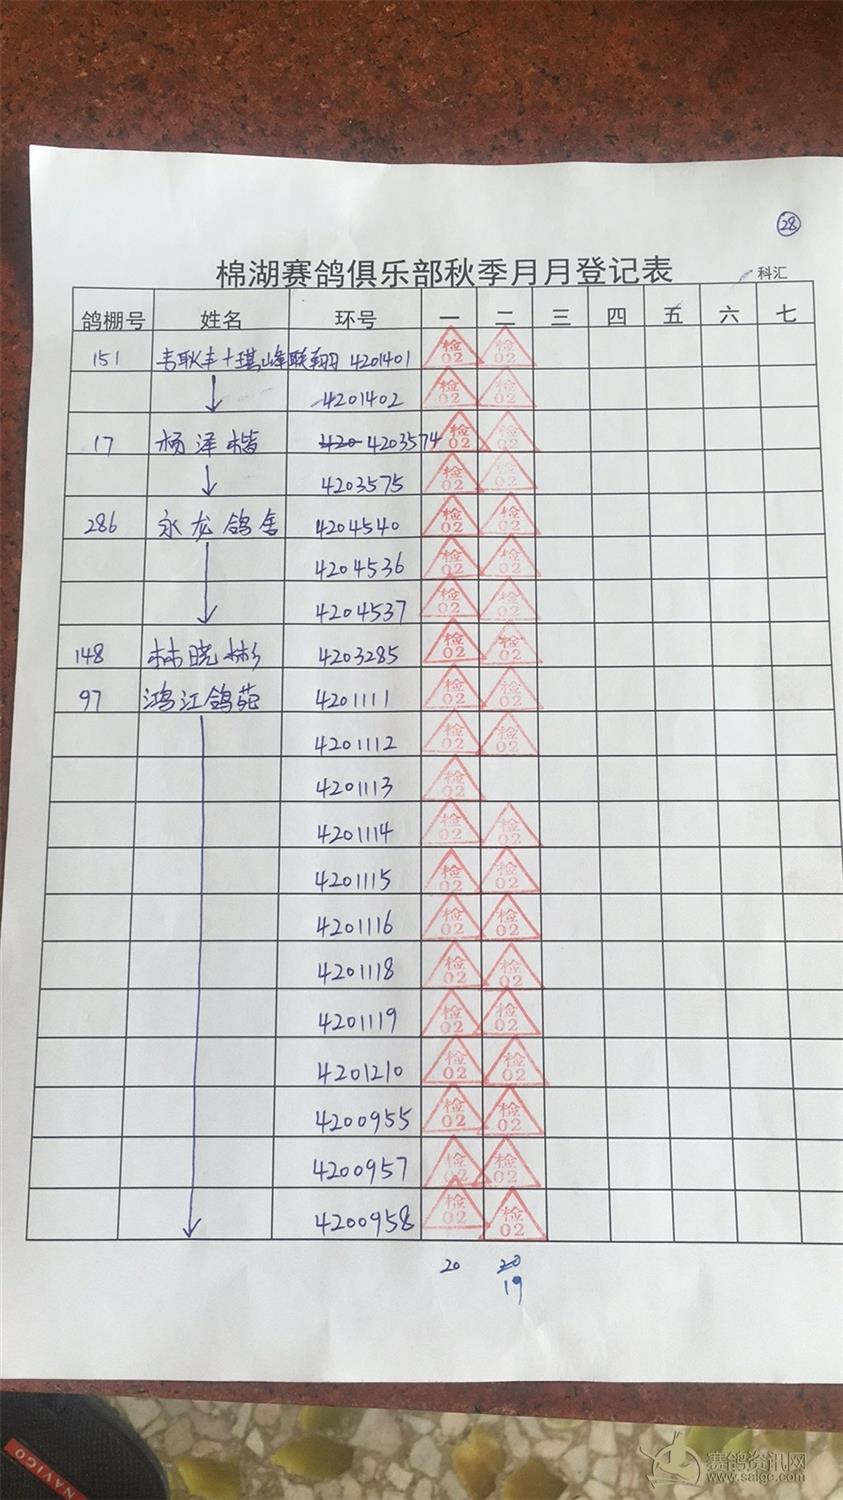 28
棉湖赛鸽俱乐部秋季月月登记表
科汇
鸽棚号 姓名 环号 一 二 三 四 五 六 七
151 联翔 4201401 检02 检02
4201402 检02 检02
17 杨泽楷 420 4203574 检02 检02
4203575 检02 检02
286 永龙鸽舍 4204540 检02 检02
4204536 检02 检02
4204537 检02 检02
148 林晓彬 4203285 检02 检02
97 鸿江鸽苑 4201111 检02 检02
4201112 检02 检02
4201113 检02
4201114 检02 检02
4201115 检02 检02
4201116 检02 检02
4201118 检02 检02
4201119 检02 检02
4201210 检02 检02
4200955 检02 检02
4200957 检02 检02
4200958 检02 检02
20 20
19
NAVIGO
赛鸽资讯网
www.saige.com